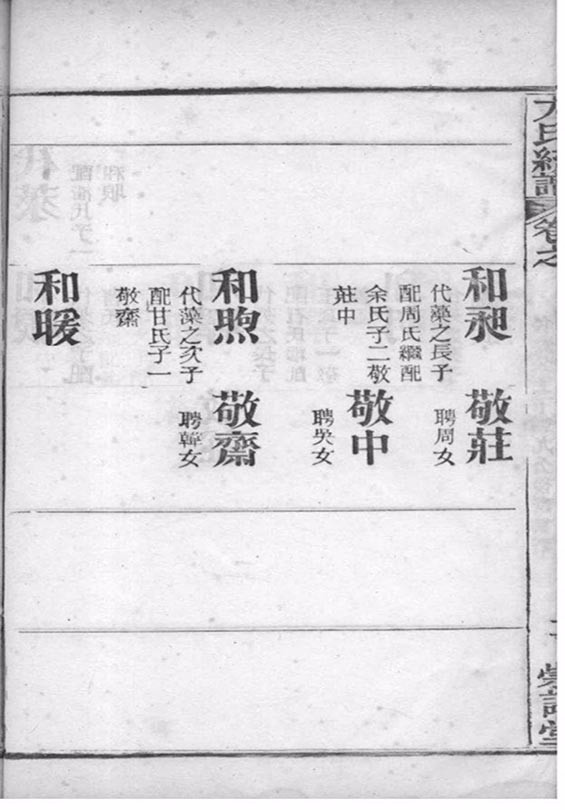 卷之
和昶
代藻之長子
配周氏繼配
余氏子二敬
莊中
敬莊
聘周女
敬中
聘吳女
和煦
代藻之次子
配甘氏子一
敬齋
敬齋
聘韓女
和暖